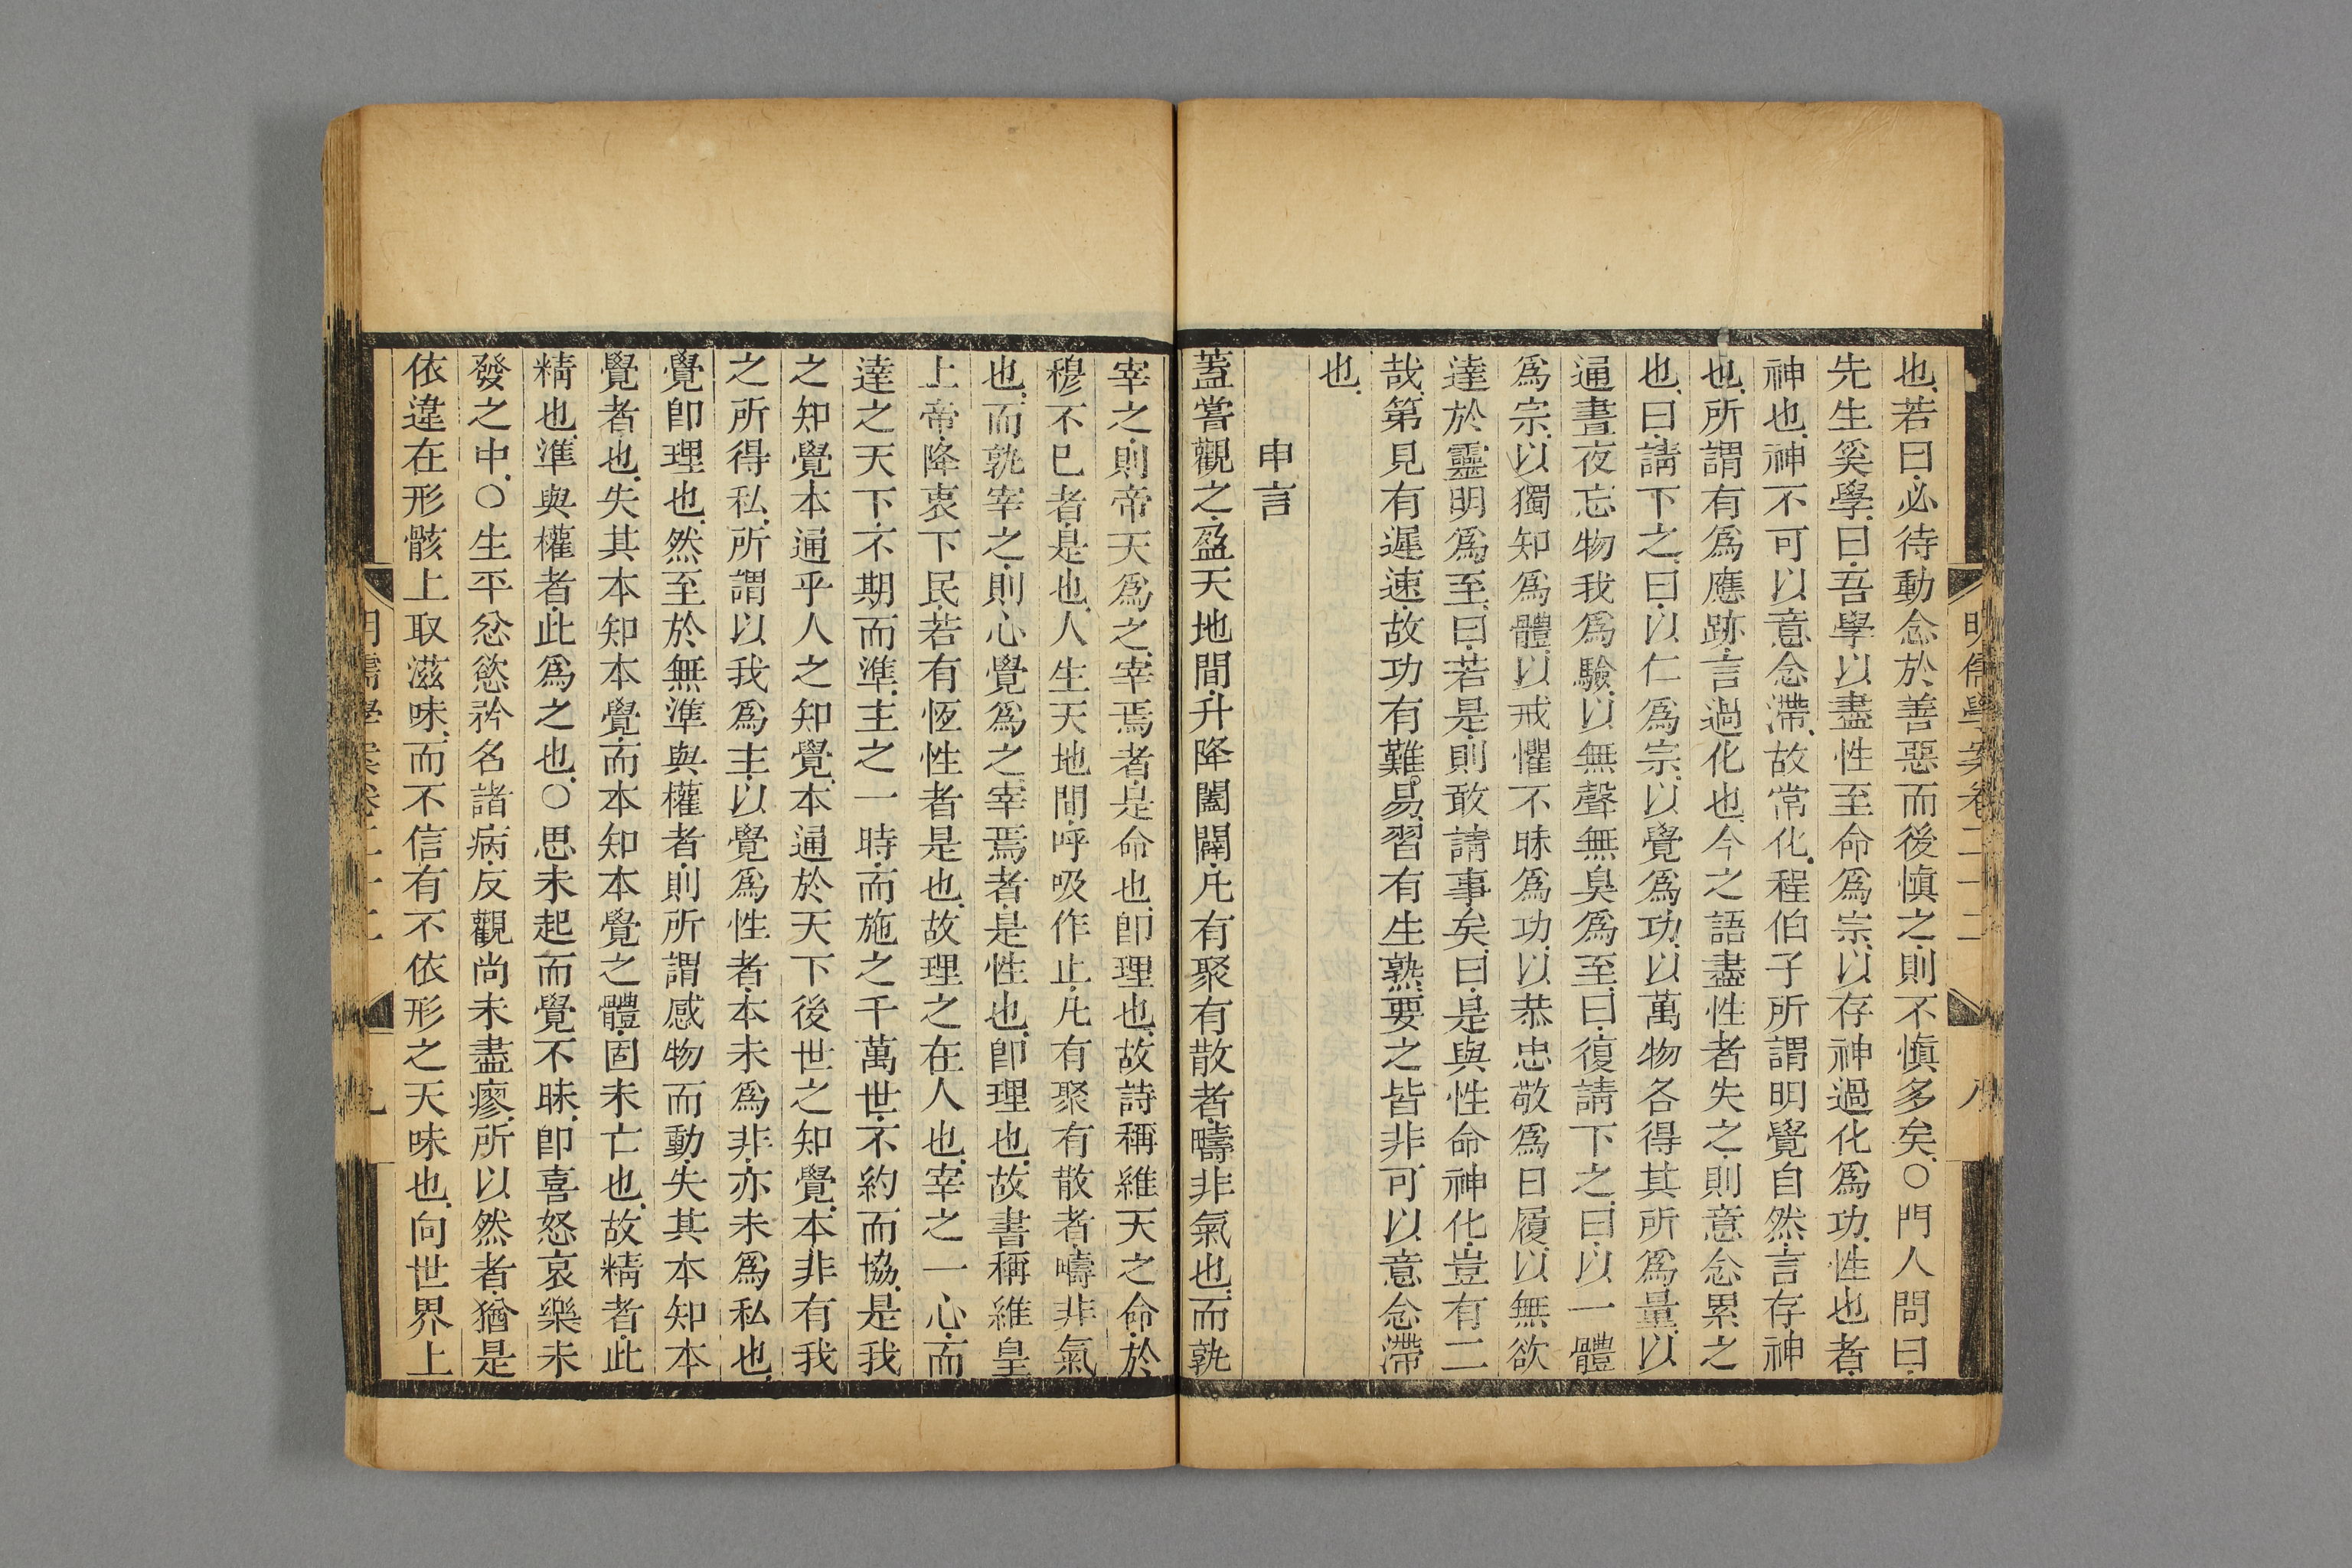 明儒學案卷二十二 八
也、若曰、必待動念於善惡而後愼之、則不愼多矣、○門人問曰、
先生奚學、曰、吾學以盡性至命爲宗、以存神過化爲功、性也者、
神也、神不可以意念滯、故常化、程伯子所謂明覺自然、言存神
也、所謂有爲應跡、言過化也、今之語盡性者失之、則意念累之
也、曰、請下之、曰、以仁爲宗、以覺爲功、以萬物各得其所爲量、以
通晝夜忘物我爲驗、以無聲無臭爲至、曰、復請下之、曰、以一體
爲宗、以獨知爲體、以戒懼不昧爲功、以恭忠敬爲日履、以無欲
達於靈明爲至、曰、若是、則敢請事矣、曰、是與性命神化、豈有二
哉、第見有遲速、故功有難易、習有生熟、要之皆非可以意念滯
也、
申言
蓋嘗觀之、盈天地間、升降闔闢、凡有聚有散者、疇非氣也、而孰
宰之、則帝天爲之、宰焉者、是命也、卽理也、故詩稱維天之命、於
穆不已者、是也、人生天地間、呼吸作止、凡有聚有散者、疇非氣
也、而孰宰之、則心覺爲之、宰焉者、是性也、卽理也、故書稱維皇
上帝、降衷下民、若有恆性者是也、故理之在人也、宰之一心、而
達之天下、不期而準、主之一時、而施之千萬世、不約而協、是我
之知覺、本通乎人之知覺、本通於天下後世之知覺、本非有我
之所得私、所謂以我爲主、以覺爲性者、本未爲非、亦未爲私也、
覺卽理也、然至於無準與權者、則所謂感物而動、失其本知本
覺者也、失其本知本覺、而本知本覺之體、固未亡也、故精者、此
精也、準與權者、此爲之也、○思未起而覺不昧、卽喜怒哀樂未
發之中、○生平忿慾矜名諸病、反觀尚未盡瘳、所以然者、猶是
依違在形骸上取滋味、而不信有不依形之天味也、向世界上
明儒學案卷二十二 九